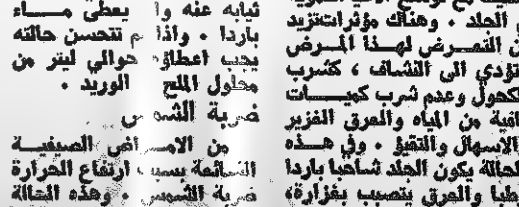 الجلد . وهناك مؤثرات تزيد
التعرض لهذا المرض
تؤدي الى النشاف ، كشرب
الكحول وعدم شرب كميات
كافية من المياه والعرق الغزير
الاسهال والتقيؤ . وفي هذه
الحالة يكون الجلد شاحبا باردا
رطبا والعرق يتصبب بغزارة،
ثيابه عنه وا يعطى ماء
باردا . واذا لم تتحسن حالته
يجب اعطاؤه حوالي ليتر من
محلول الملح الوريد .
ضربة الشمس
من الامراض الصيفية
الشائعة بسبب ارتفاع الحرارة
ضربة الشمس . وهذه الحالة